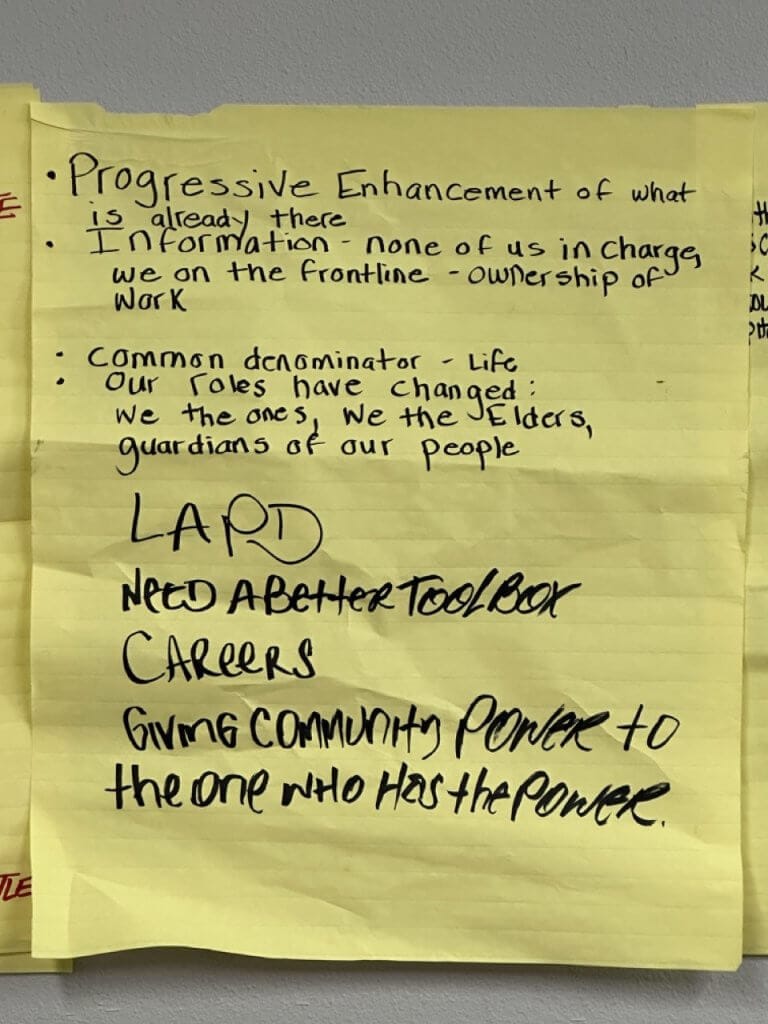 • Progressive Enhancement of what
is already there
• Information - none of us in charge,
we on the frontline - ownership of
work
• Common denominator - Life
• Our roles have changed:
we the ones, We the Elders,
guardians of our people
LAPD
NEED A BETTER TOOLBOX
CAREERS
GIVING COMMUNITY POWER to
the one WHO HAS the POWER.